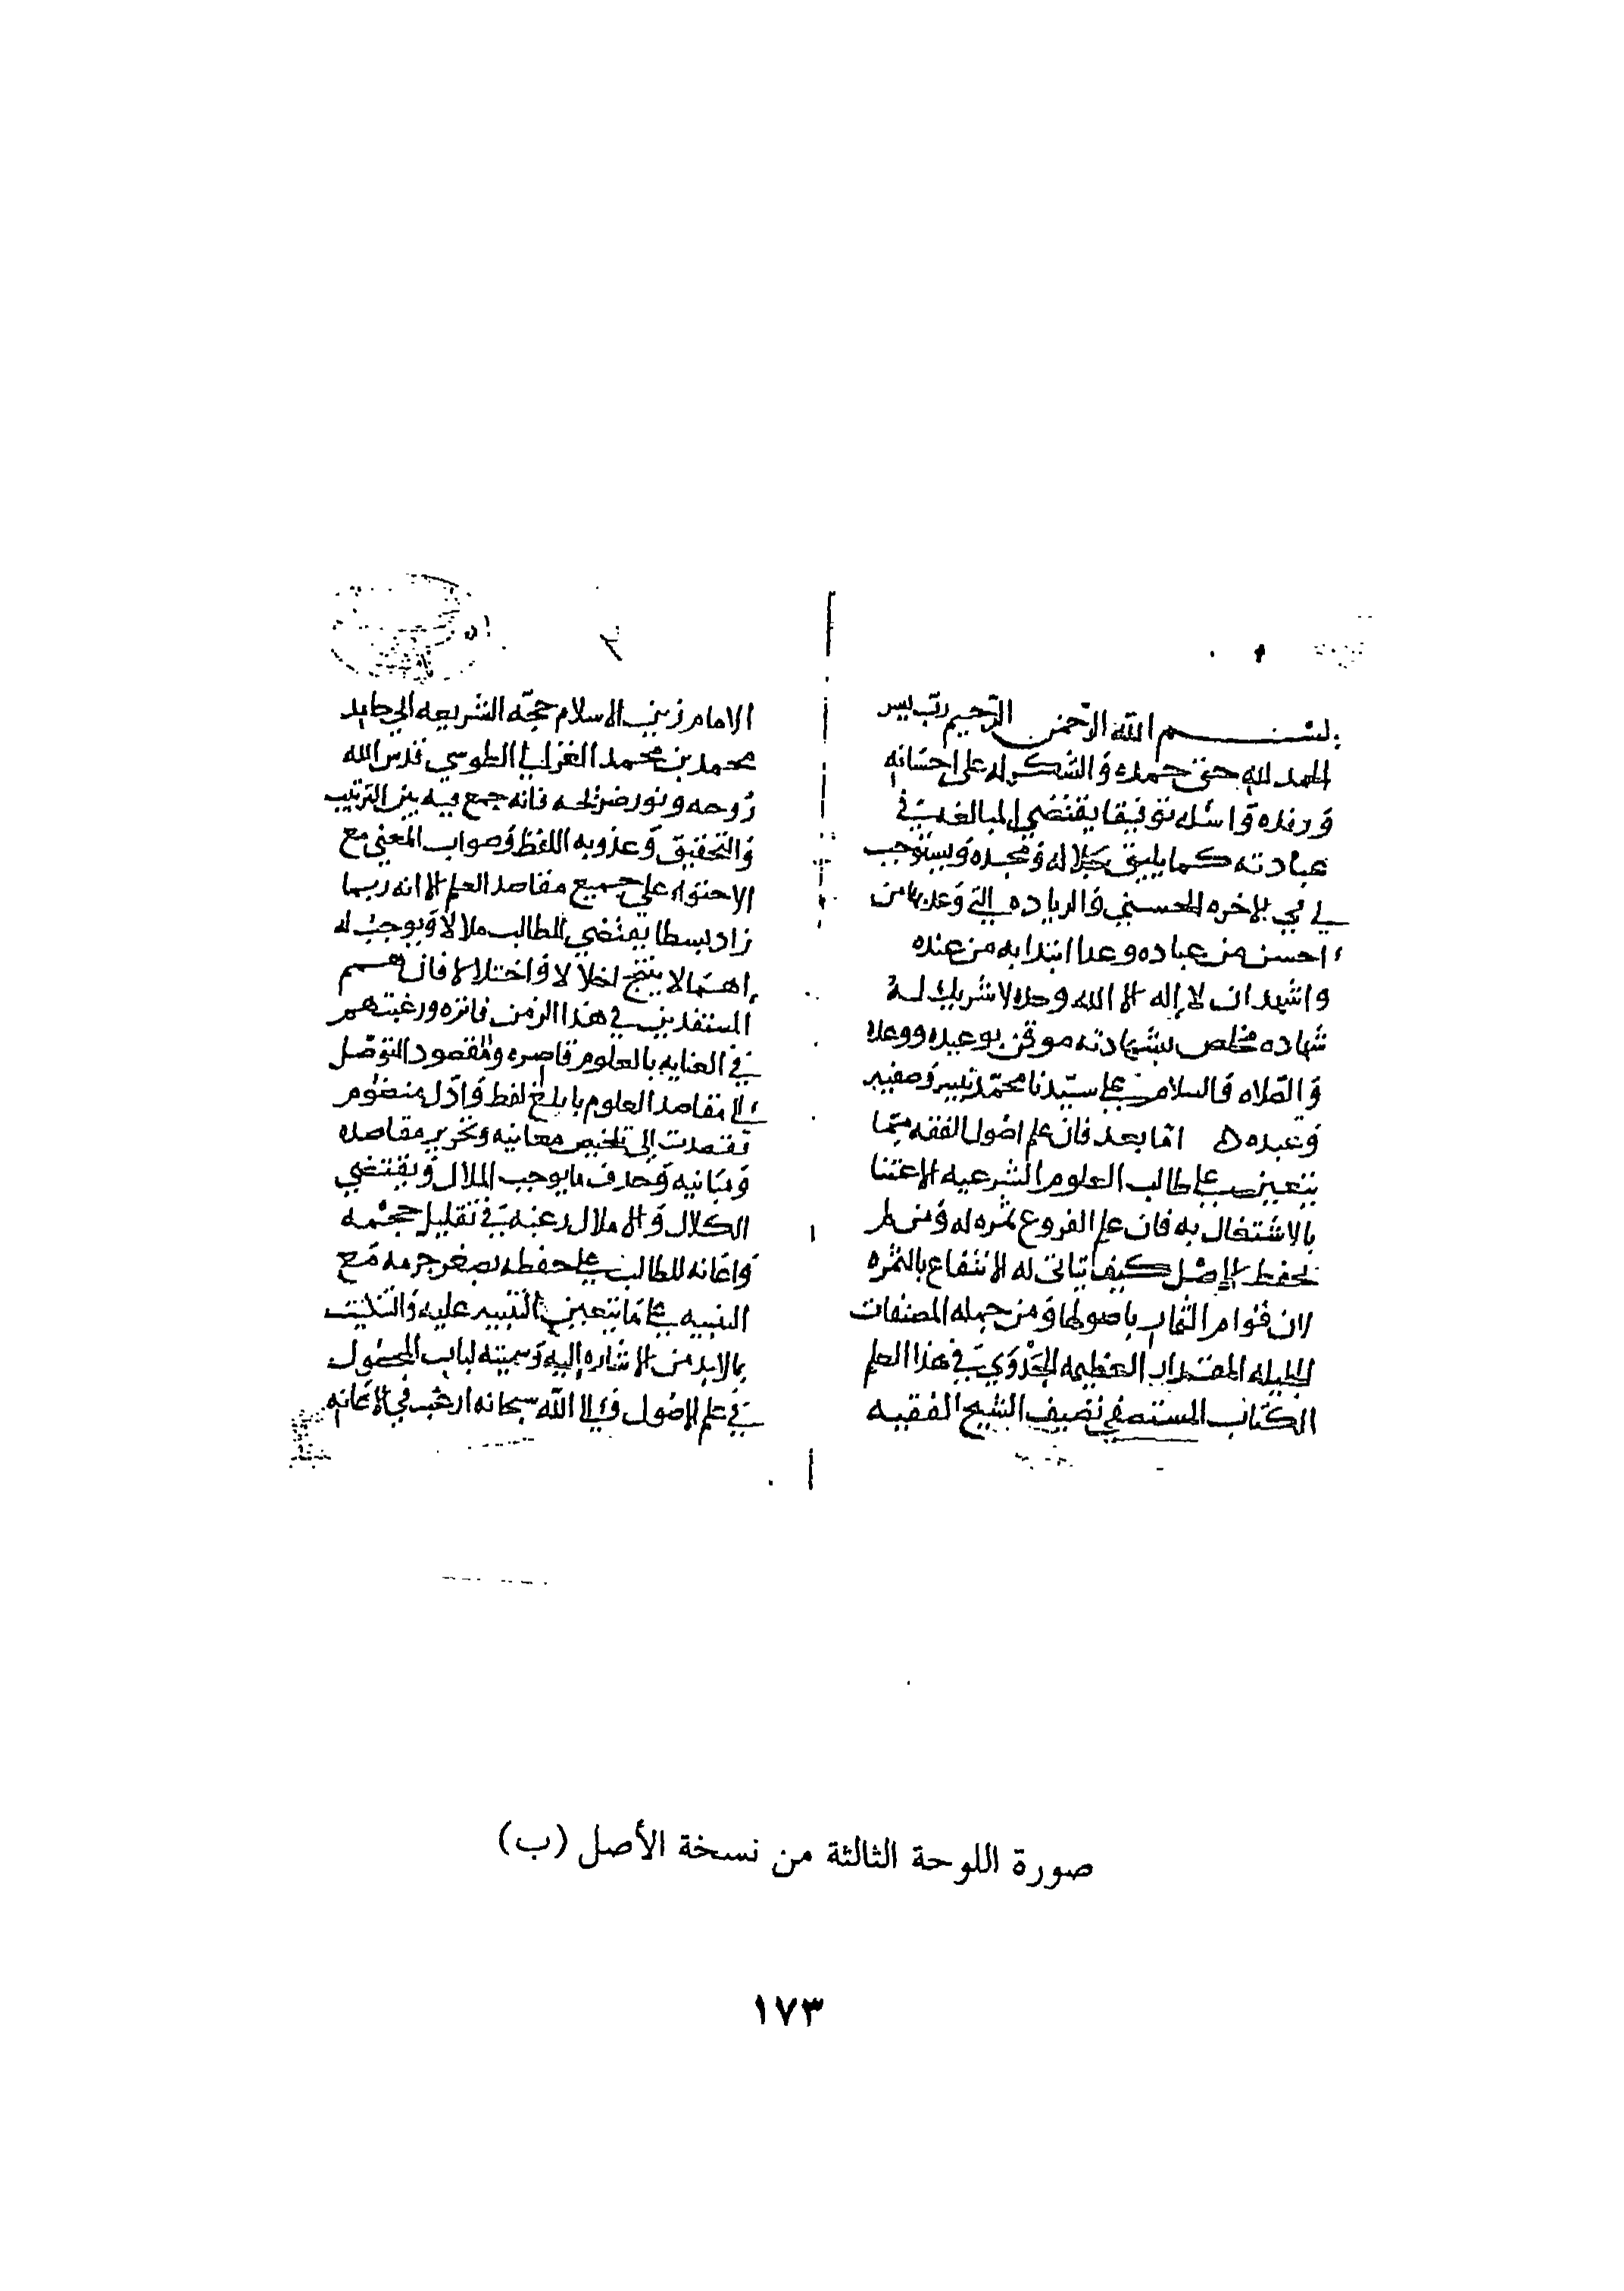 بسم الله الرحمن الرحيم رب يسر
الحمد لله حق حمده والشكر له على احسانه
ورفده واسله توفيقا يقتضي المبالغه في
عبادته كما يليق بجلاله ومجده ويستوجب
لي في الاخره الحسني والزياده التي وعد بها من
احسن من عباده وعدا ابتدا به من عنده
واشهد ان لا إله الا الله وحده لا شريك له
شهاده مخلص بشهادته موقن بوعيده ووعده
والصلاه والسلام على سيدنا محمد نبيه وصفيه
وعبده اما بعد فان علم اصول الفقه مما
يتعين على طالب العلوم الشرعيه الاعتنا
بالاشتغال به فان علم الفروع ثمره له ومن لم
يحفظ الاصل كيف يتاتى له الانتفاع بالثمره
لان قوام الثمار باصولها ومن جمله المصنفات
الجليله المقدار العظيمه الجدوي في هذا العلم
الكتاب المستصفي تصنيف الشيخ الفقيه
٢
الامام زين الاسلام حجة الشريعه ابي حامد
محمد بن محمد الغزالي الطوسي قدس الله
روحه ونور ضريحه فانه جمع فيه بين الترتيب
والتحقيق وعذوبه اللفظ وصواب المعني مع
الاحتواء على جميع مقاصد العلم الا انه ربما
زاد بسطا يقتضي للطالب ملالا ويوجب له
اهمالا ينتج اخلالا واختلالا فان همم
المستفدين في هذا الزمن فاتره ورغبتهم
في العنايه بالعلوم قاصره والمقصود التوصل
الى مقاصد العلوم بابلغ لفظ وادل منظوم
فقصدت إلى تلخيص معانيه وتحرير مقاصده
ومبانيه وحذف ما يوجب الملال ويقتضي
الكلال والاملال رغبة في تقليل حجمه
واعانه للطالب على حفظه بصغر جرمه مع
التنبيه على ما يتعين التنبيه عليه والتنكيت
بما لابد من الاشاره إليه وسميته لباب المحصول
في علم الاصول والى الله سبحانه ارغب في الاعانه
صورة اللوحة الثالثة من نسخة الأصل (ب)
١٧٣